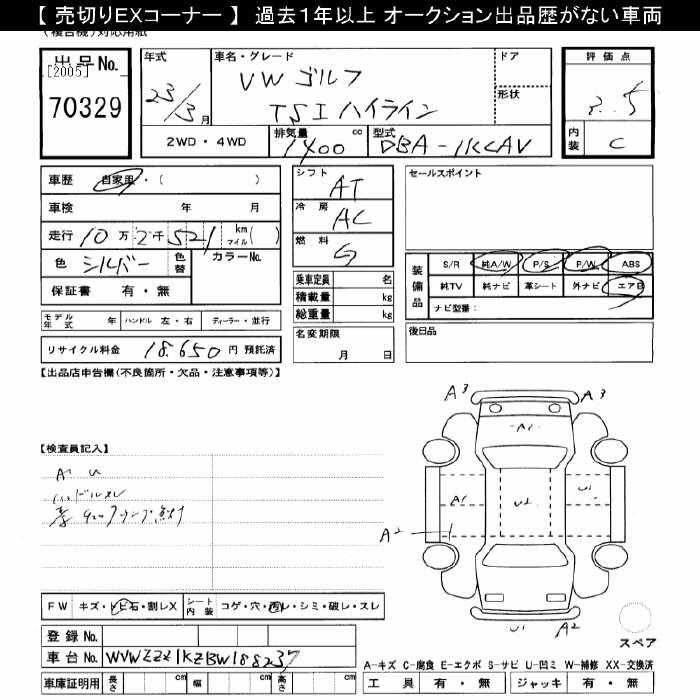 【 売切りEXコーナー 】 過去1年以上 オークション出品歴がない車両
(複合機)対応用紙
出品No.
[2005]
70329
年式
23/3月
車名・グレード
VW ゴルフ
TSI ハイライン
ドア
形状
2WD・4WD
排気量
1400 cc
型式
DBA-1KCAV
評価点
3.5
内装
C
車歴 自家用・( )
車検 年 月
走行 10万2千521 km マイル( )
色 シルバー 色替
カラーNo.
保証書 有・無
モデル年式 年
ハンドル 左・右
ディーラー・並行
リサイクル料金 18,650円 預託済
シフト
AT
冷房
AC
燃料
G
乗車定員 名
積載量 kg
総重量 kg
名変期限
月 日
セールスポイント
装備品
S/R 純A/W P/S P/W ABS
純TV 純ナビ 革シート 外ナビ エアB
ナビ型番:
後日品
【出品店申告欄(不良箇所・欠品・注意事項等)】
【検査員記入】
A U
FW キズ・トビ石・割レX
シート内装 コゲ・穴・汚レ・シミ・破レ・スレ
登録No.
車台No. WVWZZZ1KZBW188237
車庫証明用 長さ cm 幅 cm 高さ cm
A3
A3
A1
A1
U2
U1
A2
U1
A2
スペア
A-キズ C-腐食 E-エクボ S-サビ U-凹ミ W-補修 XX-交換済
工具 有・無 ジャッキ 有・無